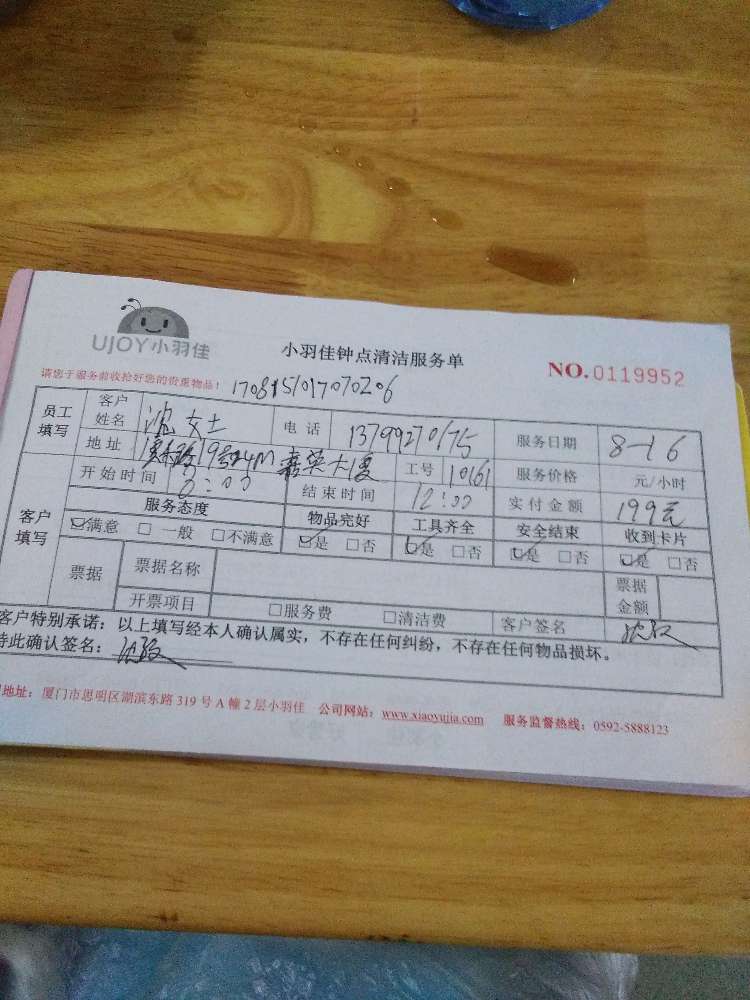 UJOY小羽佳
小羽佳钟点清洁服务单
NO.0119952
请您于服务前收拾好您的贵重物品！
170815017070206
员工填写 客户姓名 沈女士 电话 13799270175 服务日期 8-16
地址 19 嘉英大厦 工号 10161 服务价格 元/小时
客户填写 开始时间 8:00 结束时间 12:00 实付金额 199元
服务态度 物品完好 工具齐全 安全结束 收到卡片
☑满意 □一般 □不满意 ☑是 □否 ☑是 □否 ☑是 □否 ☑是 □否
票据 票据名称 票据金额
开票项目 □服务费 □清洁费 客户签名
客户特别承诺：以上填写经本人确认属实，不存在任何纠纷，不存在任何物品损坏。
特此确认签名：
地址：厦门市思明区湖滨东路319号A幢2层小羽佳 公司网站：www.xiaoyujia.com 服务监督热线：0592-5888123